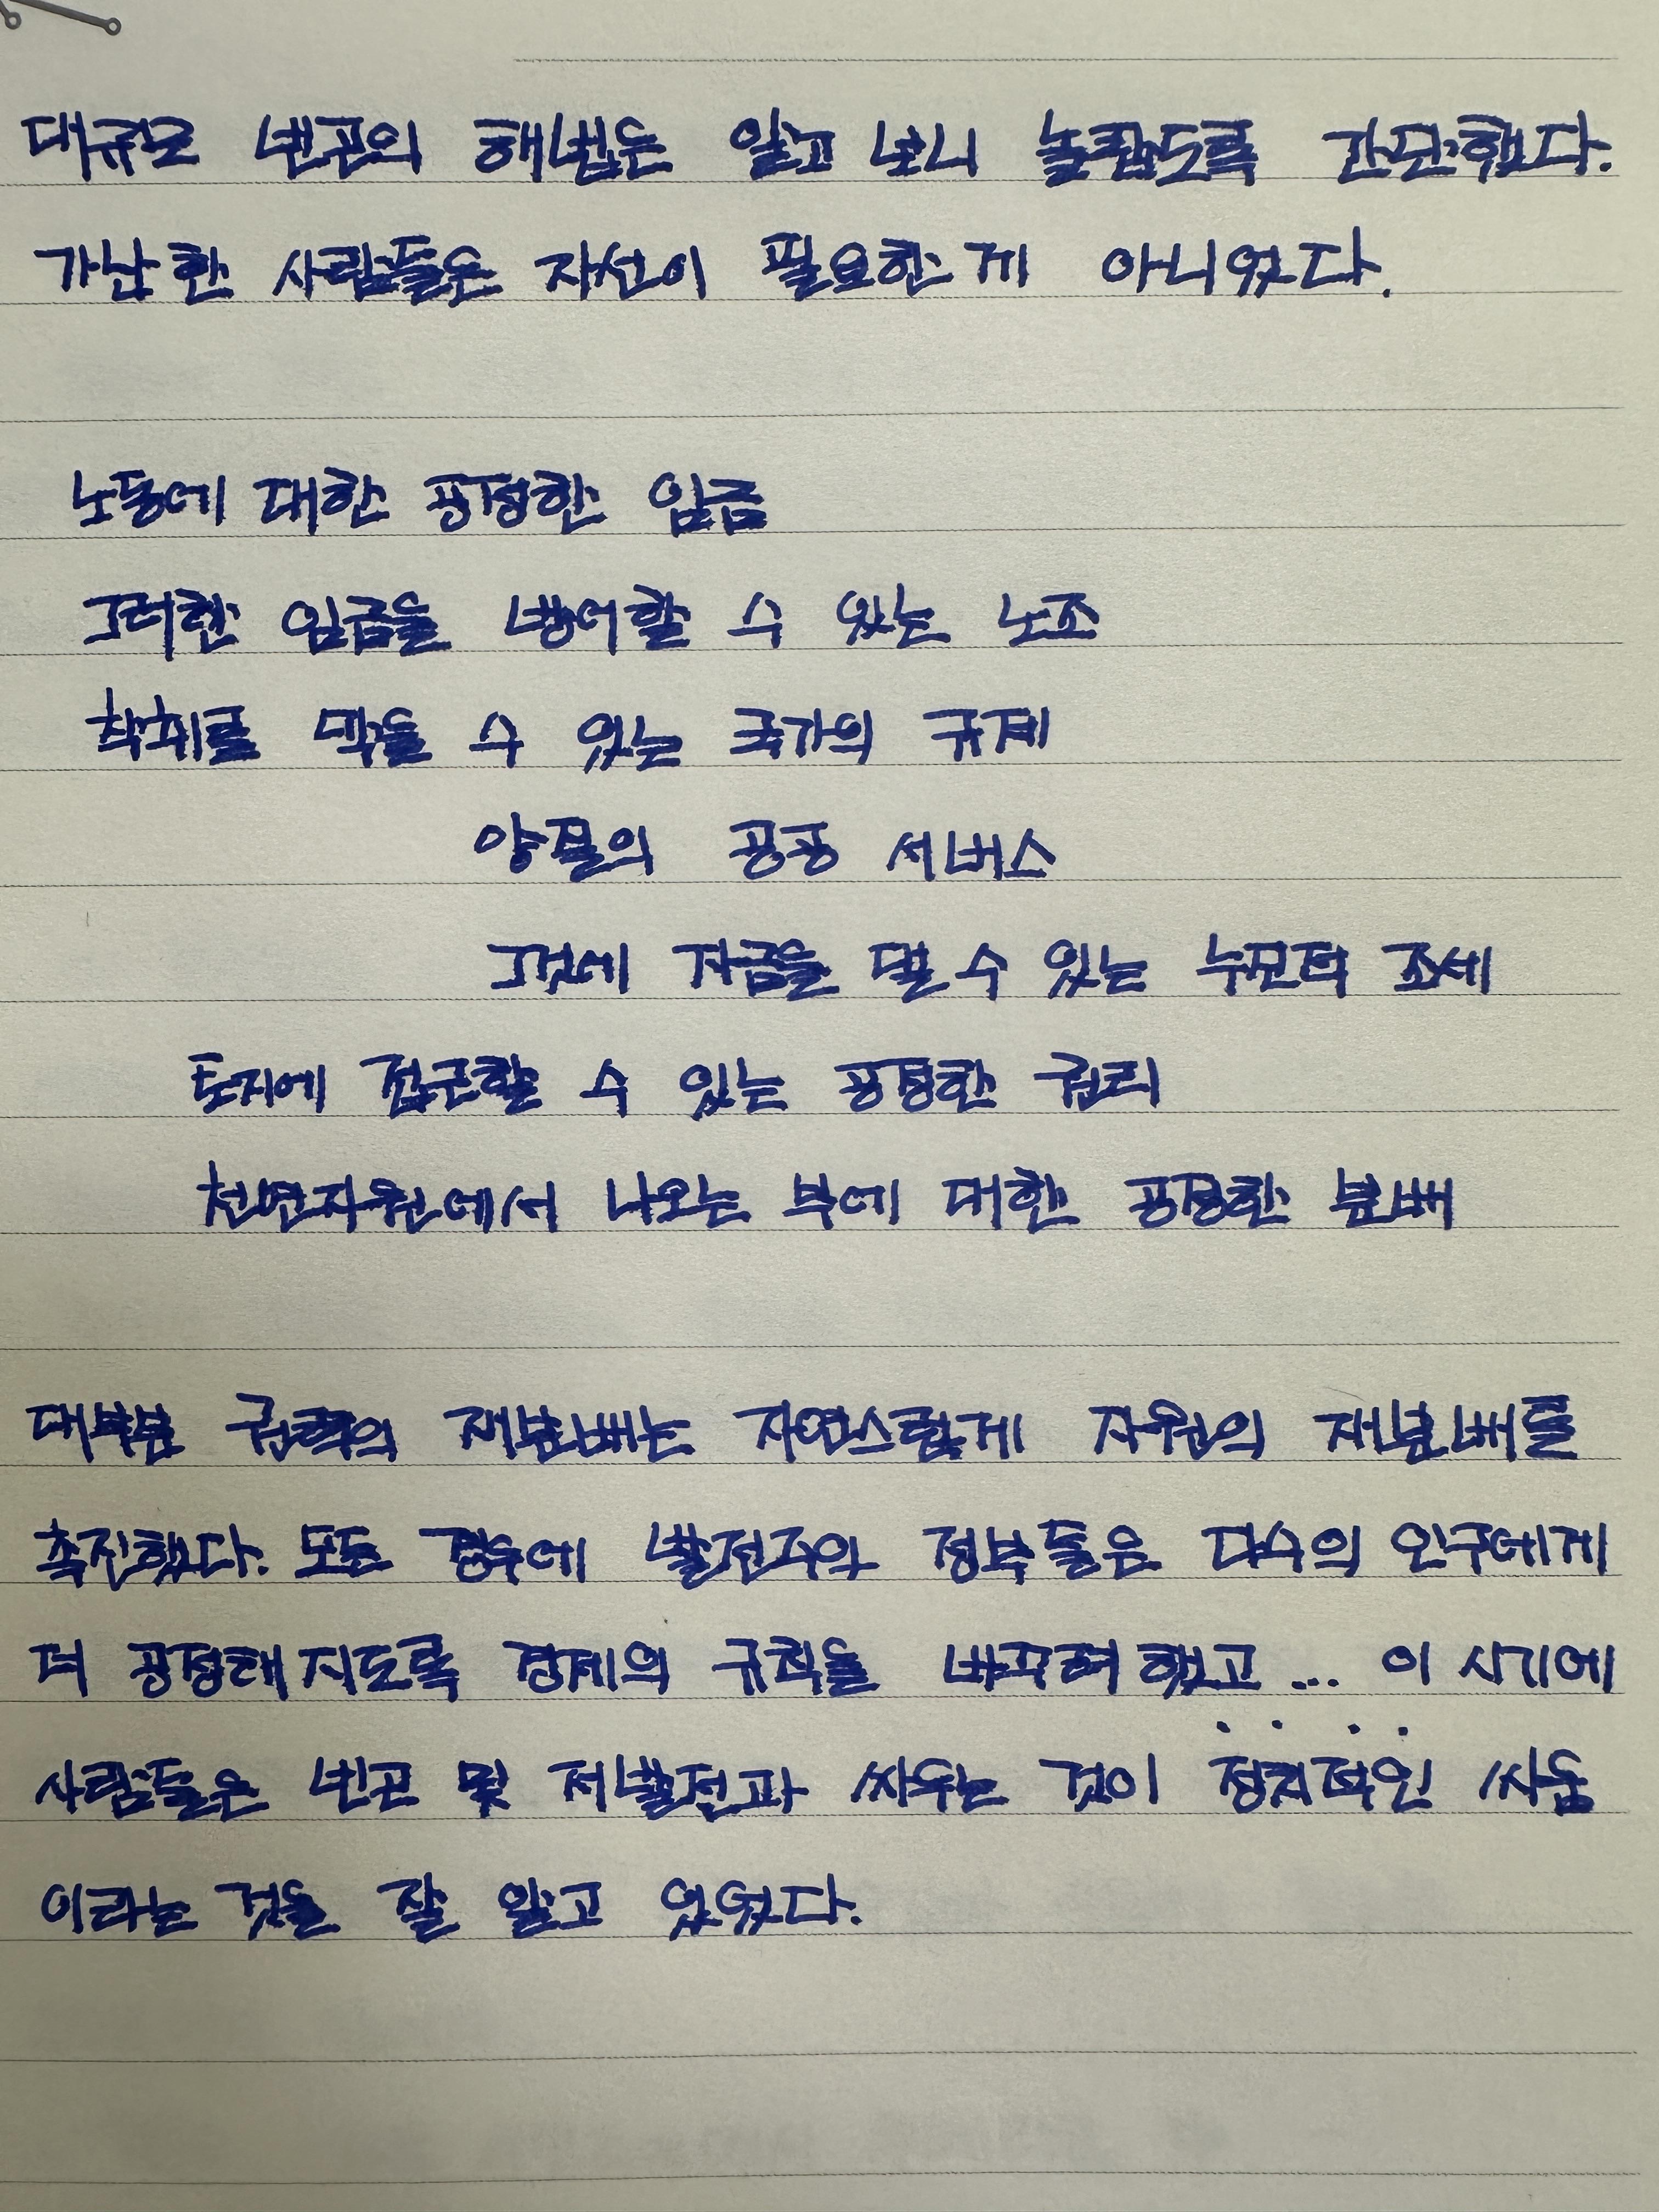 대규모 빈곤의 해법은 알고 보니 놀랍도록 간단했다.
가난한 사람들은 자선이 필요한 게 아니었다.
노동에 대한 공정한 임금
그러한 임금을 방어할 수 있는 노조
착취를 막을 수 있는 국가의 규제
양질의 공공 서비스
그것에 자금을 댈 수 있는 누진적 조세
토지에 접근할 수 있는 공정한 권리
천연자원에서 나오는 부에 대한 공정한 분배
대부분 권력의 재분배는 자연스럽게 자원의 재분배를
촉진했다. 모든 경우에 발전주의 정부들은 다수의 인구에게
더 공정해지도록 경제의 규칙을 바꾸려 했고... 이 시기에
사람들은 빈곤 및 저발전과 싸우는 것이 정치적인 싸움
이라는 것을 잘 알고 있었다.